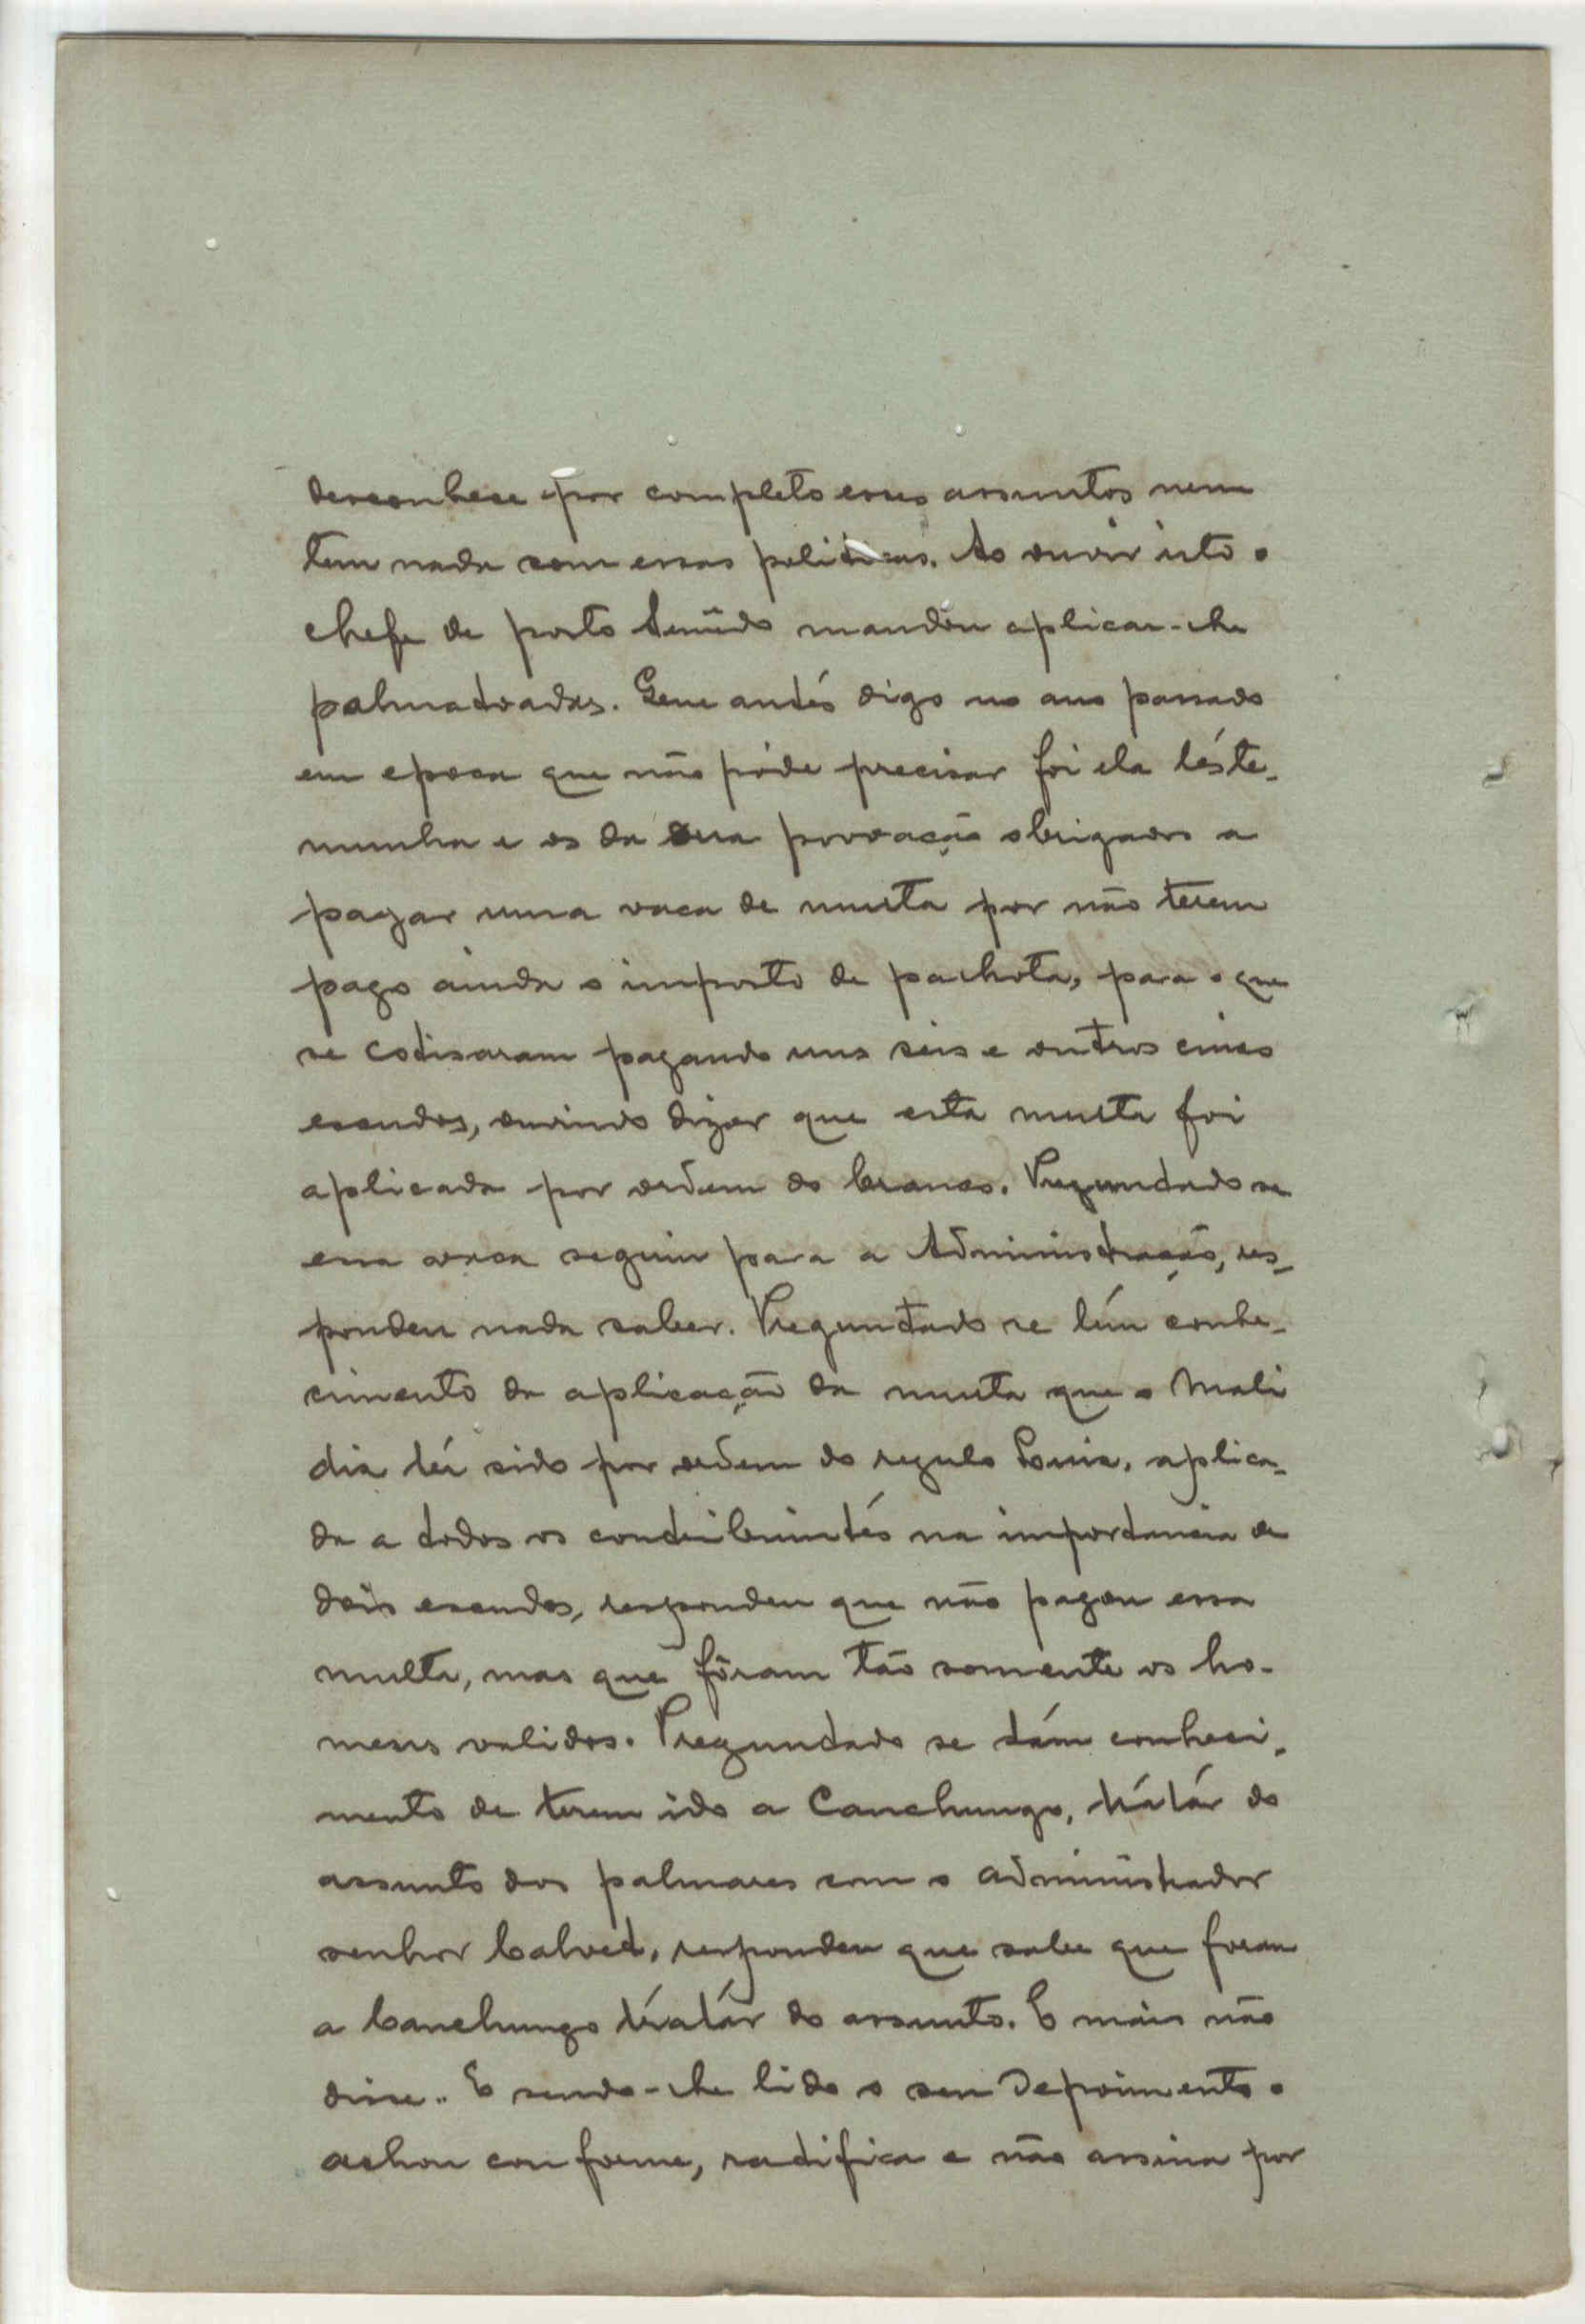 desconhece por completo esses assuntos nem
tem nada com essas politicas. Ao ouvir isto o
chefe de posto mandou aplicar-lhe
palmatoadas. Que antés digo no ano passado
em epoca que não póde precisar foi ela téste-
munha e os da sua povoação obrigados a
pagar uma vaca de multa por não terem
pago ainda o imposto de palhota, para o que
se cotisaram pagando uns seis e outros cinco
escudos, ouvindo dizer que esta multa foi
aplicada por ordem do branco. Preguntado se
essa vaca seguiu para a Administração, res-
pondeu nada saber. Preguntado se tém conhe-
cimento da aplicação da multa que o Mali
diz tér sido por ordem do regulo Louis, aplica-
da a todos os contribuintés na importancia de
dois escudos, respondeu que não pagou essa
multa, mas que fôram tão somente os ho-
mens validos. Preguntado se tám conheci-
mento de terem ido a Canchungo, trátár do
assunto dos palmares com o administrador
senhor Calvet, respondeu que sabe que foram
a Canchungo trátár do assunto. E mais não
disse.. E sendo-lhe lido o seu depoimento o
achou conforme, ratifica e não assina por